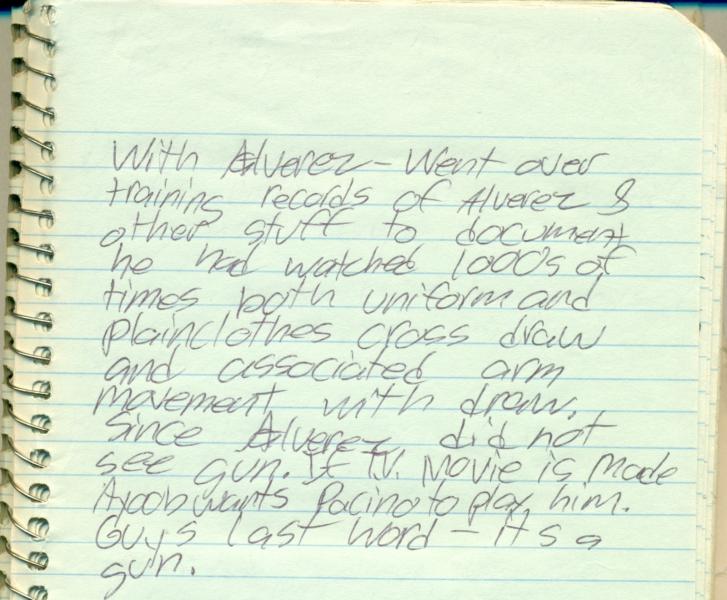 With Alverez - Went over
training records of Alverez &
other stuff to document
he had watched 1000's of
times both uniform and
plainclothes cross draw
and associated arm
movement with draw,
Since Alverez did not
see gun. If T.V. Movie is Made
Ayoob wants Pacino to play him.
Guys last word - its a
gun.